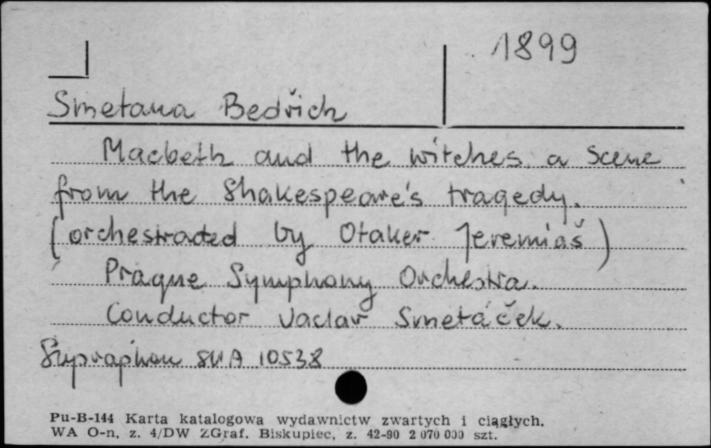 1899
Smetana Bedřich
Macbeth and the witches a scene
from the Shakespeare's tragedy.
(orchestrated by Otaker Jeremiáš)
Prague Symphony Orchestra.
Conductor Vaclav Smetáček.
Supraphon SUA 10538
Pu-B-144 Karta katalogowa wydawnictw zwartych i ciągłych.
WA O-n, z. 4/DW ZGraf. Biskupiec, z. 42-90 2 070 000 szt.